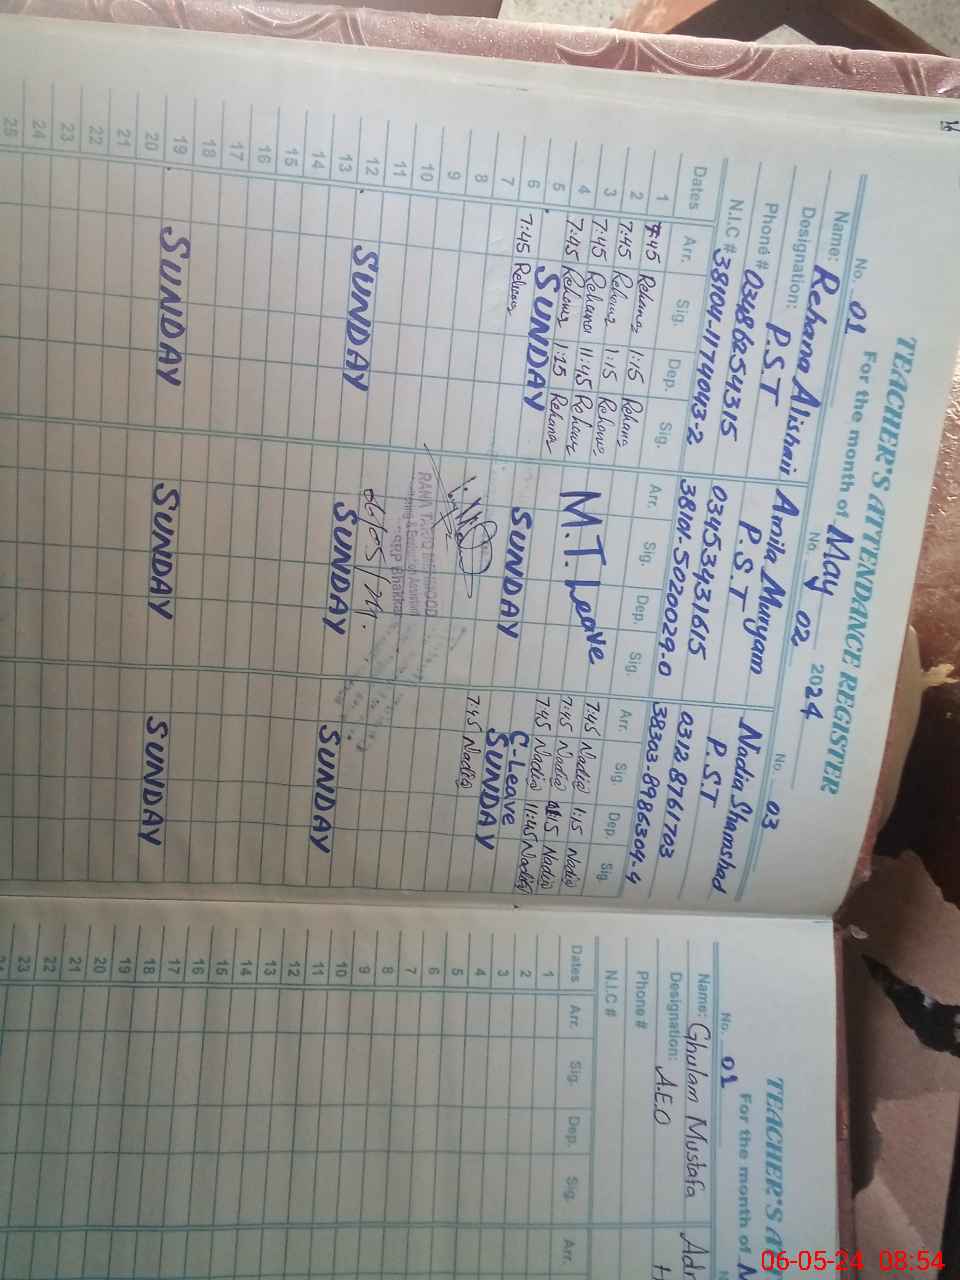 TEACHER'S ATTENDANCE REGISTER
For the month of May 2024
No. 01
Name: Rehana Alishair
Designation: P.S.T
Phone # 03486254315
N.I.C # 38104-1174043-2
No. 02
Amila Muryam
P.S.T
03453431615
38101-5020029-0
No. 03
Nadia Shamshad
P.S.T
03128761703
38303-8986304-4
Dates Arr. Sig. Dep. Sig. Arr. Sig. Dep. Sig. Arr. Sig. Dep. Sig.
1 7:45 Rehana 1:15 Rehana
2 7:45 Rehana 1:15 Rehana 7:45 Nadia 1:15 Nadia
3 7:45 Rehana 11:45 Rehana M.T Leave 7:45 Nadia 1:15 Nadia
4 7:45 Rehana 1:15 Rehana 7:45 Nadia 11:45 Nadia
C-Leave
5 SUNDAY SUNDAY SUNDAY
6 7:45 Rehana 7:45 Nadia
7
8
9
10
RANA TARIQ MEHMOOD
06/05/24.
11
12 SUNDAY SUNDAY SUNDAY
13
14
15
16
17
18
19 SUNDAY SUNDAY SUNDAY
20
21
22
23
24
25
TEACHER'S AT
For the month of M
No. 01
Name: Ghulam Mustafa
Designation: A.E.O
Phone #
N.I.C #
Dates Arr. Sig. Dep. Sig. Arr.
1
2
3
4
5
6
7
8
9
10
11
12
13
14
15
16
17
18
19
20
21
22
23
06-05-24 08:54